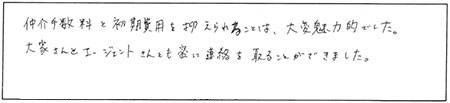 仲介手数料と初期費用を抑えられることは、大変魅力的でした。
大家さんとエージェントさんとも密に連絡を取ることができました。